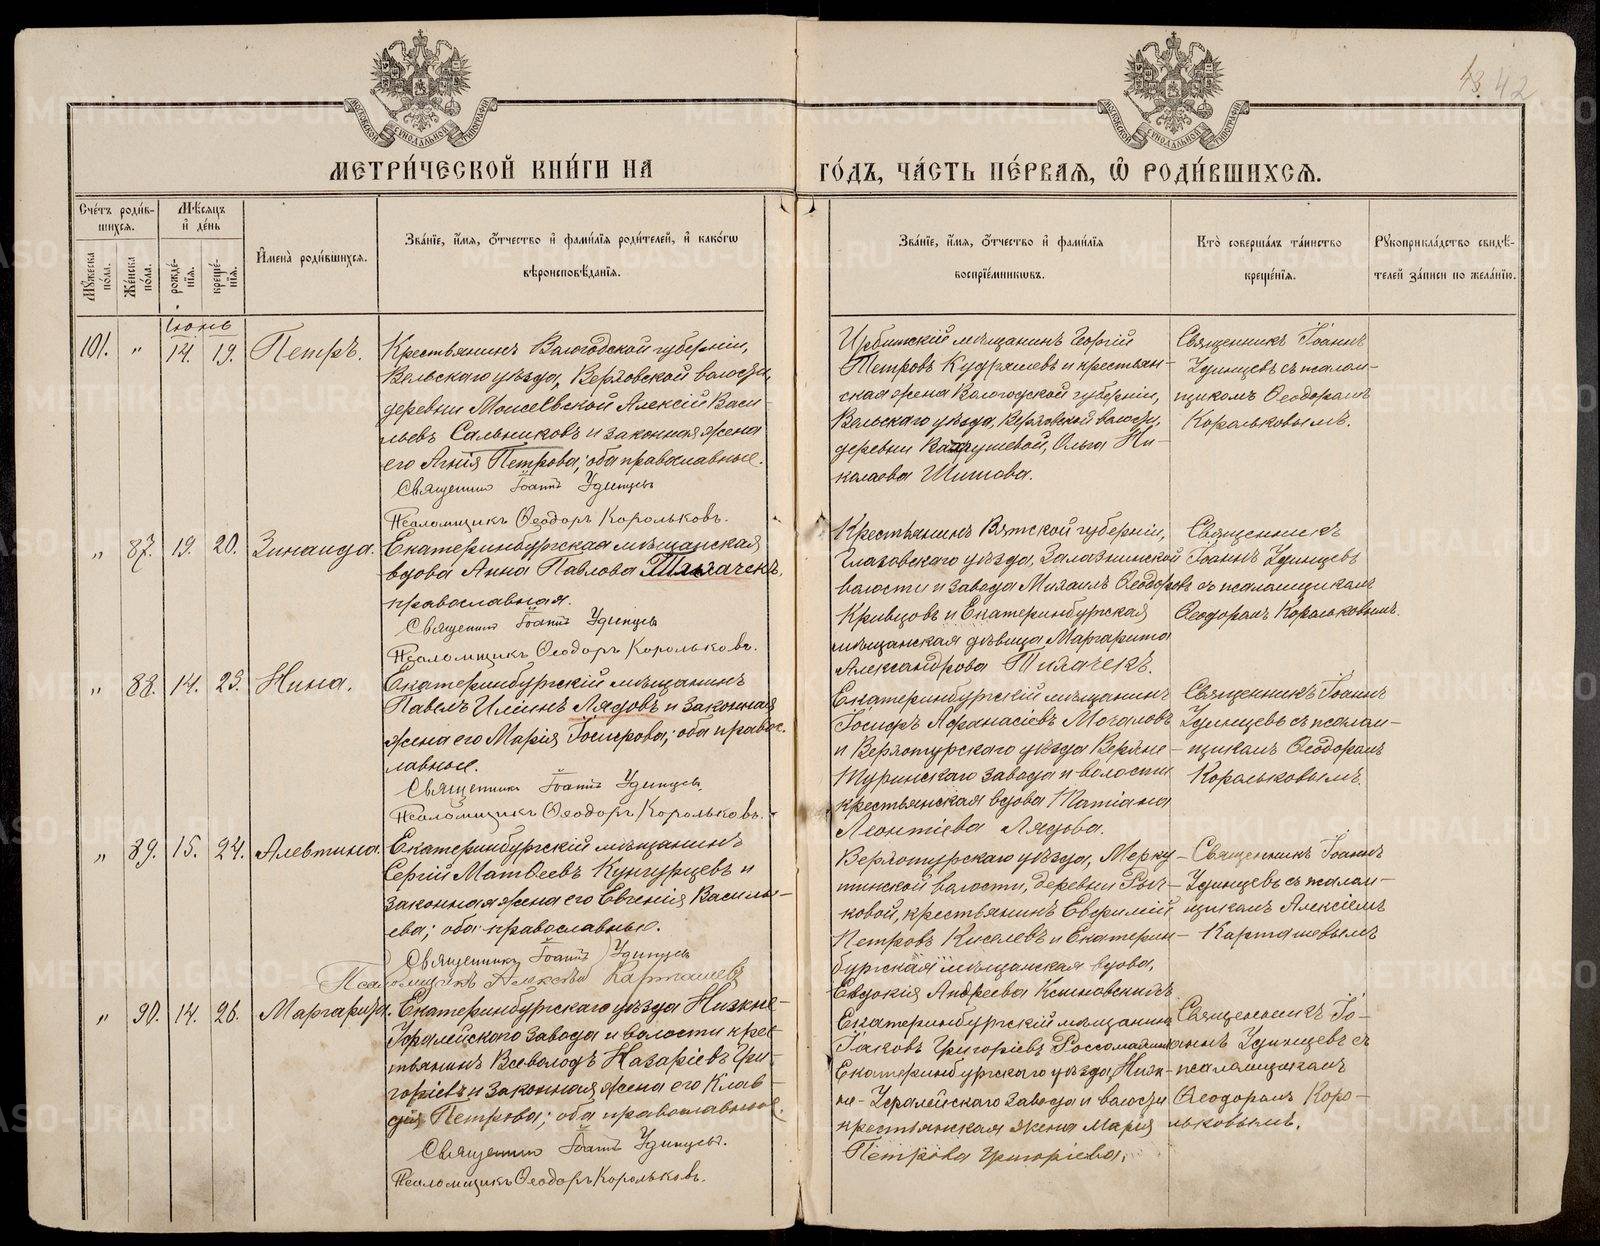 43. 42
МОСКОВСКОЙ СѴНОДАЛЬНОЙ ТИПОГРАФІИ
МОСКОВСКОЙ СѴНОДАЛЬНОЙ ТИПОГРАФІИ
МЕТРИ́ЧЕСКОЙ КНИ́ГИ НА
ГО́ДЪ, ЧА́СТЬ ПЕ́РВАѦ, Ѡ РОДИ́ВШИХСѦ.
Сче́тъ роди́в-
шихсѧ.
Мѣ́сѧцъ
и҆ де́нь
Мꙋ́жеска по́ла.
Же́нска по́ла.
рожде́-
нїѧ.
креще́-
нїѧ.
И҆мена̀ роди́вшихсѧ.
Зва́нїе, и҆́мѧ, ѻ҆́тчество и҆ фами́лїѧ роди́телей, и҆ како́гѡ
вѣроисповѣ́данїѧ.
Зва́нїе, и҆́мѧ, ѻ҆́тчество и҆ фами́лїѧ
воспрїе́мникѡвъ.
Кто̀ соверша́лъ та́инство
креще́нїѧ.
Рꙋкоприкла́дство свидѣ́-
телей за́писи по жела́нїю.
Іюнь
101. " 14. 19. Петръ.
Крестьянинъ Вологодской губерніи,
Вельскаго уѣзда, Верховской волости,
деревни Моисеевской Алексій Васи-
льевъ Сальниковъ и законная жена
его Агнія Петрова; оба православные.
Священникъ Іоаннъ Удинцевъ
Псаломщикъ Ѳеодоръ Корольковъ.
Ирбитскій мѣщанинъ Георгій
Петровъ Кудряшевъ и крестьян-
ская жена Вологодской губерніи,
Вельскаго уѣзда, Верховской волости,
деревни Вахрушевой, Ольга Ни-
колаева Шитова.
Священникъ Іоаннъ
Удинцевъ съ псалом-
щикомъ Ѳеодоромъ
Корольковымъ.
" 87. 19. 20. Зинаида.
Екатеринбургская мѣщанская
вдова Анна Павлова
православная.
Священникъ Іоаннъ Удинцевъ
Псаломщикъ Ѳеодоръ Корольковъ.
Крестьянинъ Вятской губерніи,
Глазовскаго уѣзда, Залазнинской
волости и завода Михаилъ Ѳеодоровъ
Кривцовъ и Екатеринбургская
мѣщанская дѣвица Маргарита
Александрова
Священникъ
Іоаннъ Удинцевъ
съ псаломщикомъ
Ѳеодоромъ Корольковымъ.
" 88. 14. 23. Нина.
Екатеринбургскій мѣщанинъ
Павелъ Ильинъ Лядовъ и законная
жена его Марія Іосифова; оба правос-
лавные.
Священникъ Іоаннъ Удинцевъ.
Псаломщикъ Ѳеодоръ Корольковъ.
Екатеринбургскій мѣщанинъ
Іосифъ Афанасіевъ Мочаловъ
и Верхотурскаго уѣзда Верхне-
Туринскаго завода и волости
крестьянская вдова Татіана
Леонтіева Лядова.
Священникъ Іоаннъ
Удинцевъ съ псалом-
щикомъ Ѳеодоромъ
Корольковымъ.
" 89. 15. 24. Алевтина.
Екатеринбургскій мѣщанинъ
Сергій Матѳеевъ Кунгурцевъ и
законная жена его Евгенія Василь-
ева; оба православные.
Священникъ Іоаннъ Удинцевъ
Псаломщикъ Алексѣй Карташевъ
Верхотурскаго уѣзда, Мерку-
шинской волости, деревни
крестьянинъ Евфимій
Петровъ Киселевъ и Екатерин-
бургская мѣщанская вдова,
Евдокія Андреева
Священникъ Іоаннъ
Удинцевъ съ псалом-
щикомъ Алексіемъ
Карташевымъ
" 90. 14. 26. Маргарита.
Екатеринбургскаго уѣзда Нижне-
Уфалейскаго завода и волости крес-
тьянинъ Всеволодъ Назаріевъ Гри-
горіевъ и законная жена его Клав-
дія Петрова; оба православные.
Священникъ Іоаннъ Удинцевъ.
Псаломщикъ Ѳеодоръ Корольковъ.
Екатеринбургскій мѣщанинъ
Іаковъ Григоріевъ
Екатеринбургскаго уѣзда, Ниж-
не-Уфалейскаго завода и волости
крестьянская жена Марія
Петрова Григоріева.
Священникъ Іо-
аннъ Удинцевъ съ
псаломщикомъ
Ѳеодоромъ Коро-
льковымъ.
METRIKI.GASO-URAL.RU